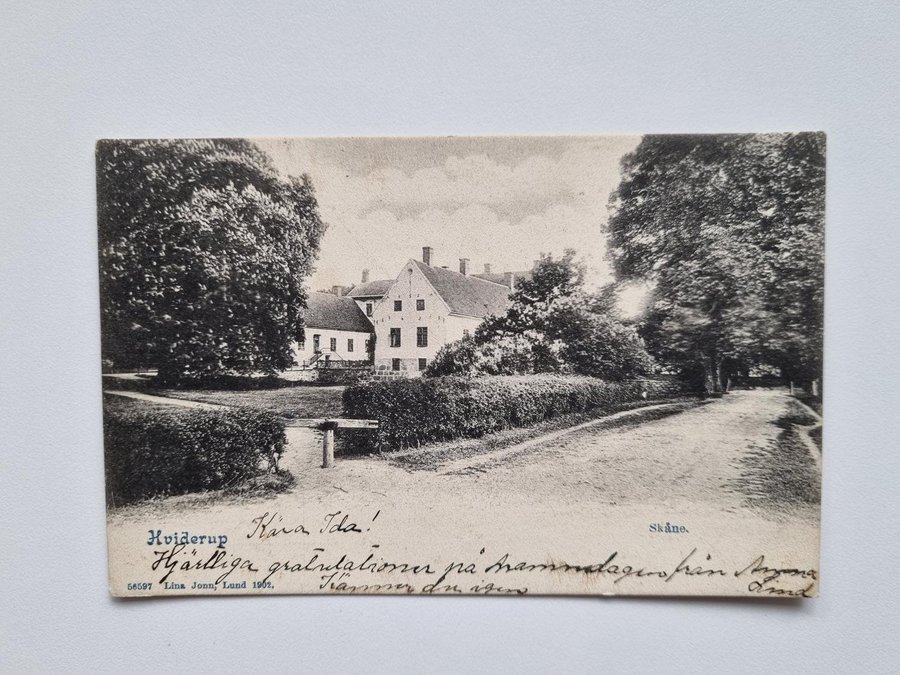 Hviderup
Kära Ida!
Skåne.
Hjärtliga gratulationer på namnsdagen från Anna
Lind
Känner du igen
56597 Lina Jonn, Lund 1902.